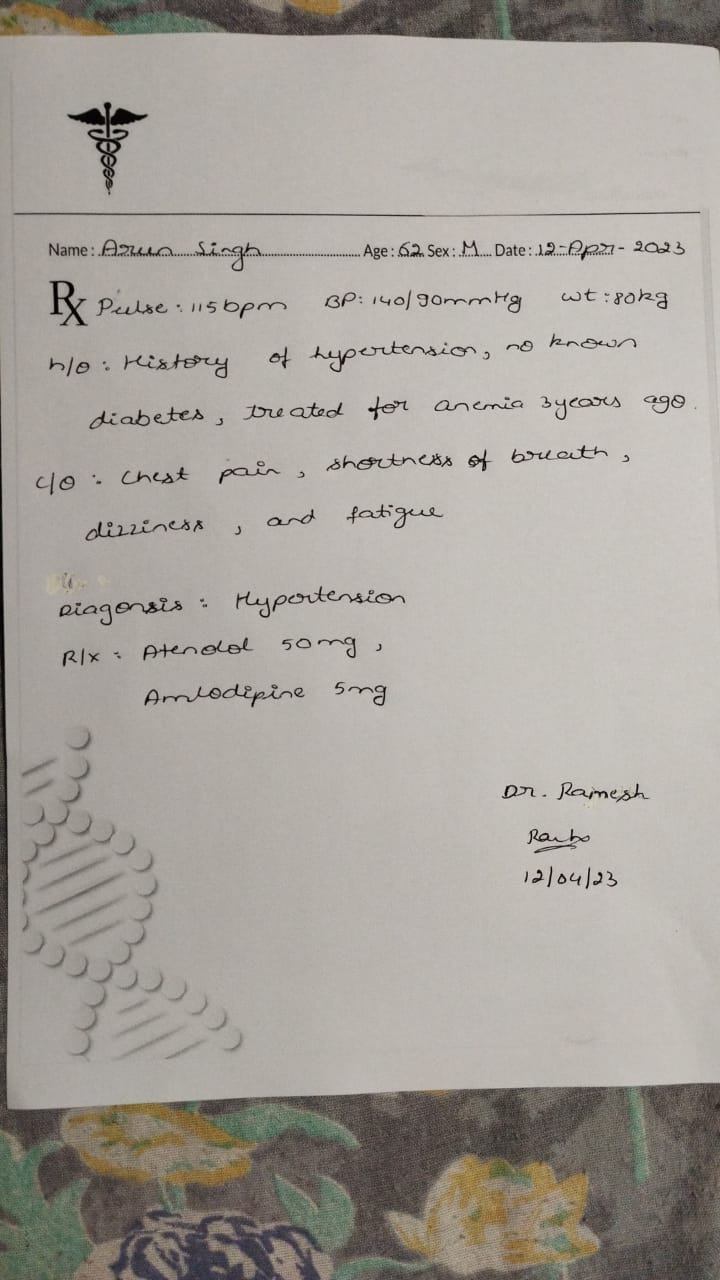 Name: Arun Singh Age: 62 Sex: M Date: 12-Apr-2023
Rx Pulse: 115bpm BP: 140/90mmHg wt: 80kg
h/o: History of hypertension, no known
diabetes, treated for anemia 3years ago.
c/o: Chest pain, shortness of breath,
dizziness, and fatigue
Diagonsis: Hypertension
R/x: Atenolol 50mg,
Amlodipine 5mg
Dr. Ramesh
12/04/23